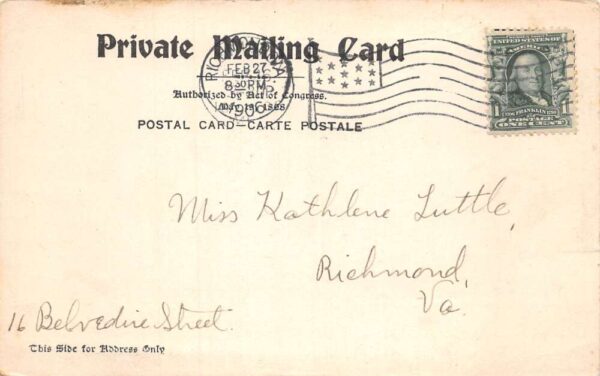 Private Mailing Card
RICHMOND, VA.
FEB 27
8 30 PM
1906
Authorized by Act of Congress.
May 19, 1898
POSTAL CARD—CARTE POSTALE
UNITED STATES OF AMERICA
FRANKLIN
1 1
POSTAGE
ONE CENT
Miss Kathlene Tuttle,
Richmond,
Va.
16 Belvedire Street.
This Side for Address Only